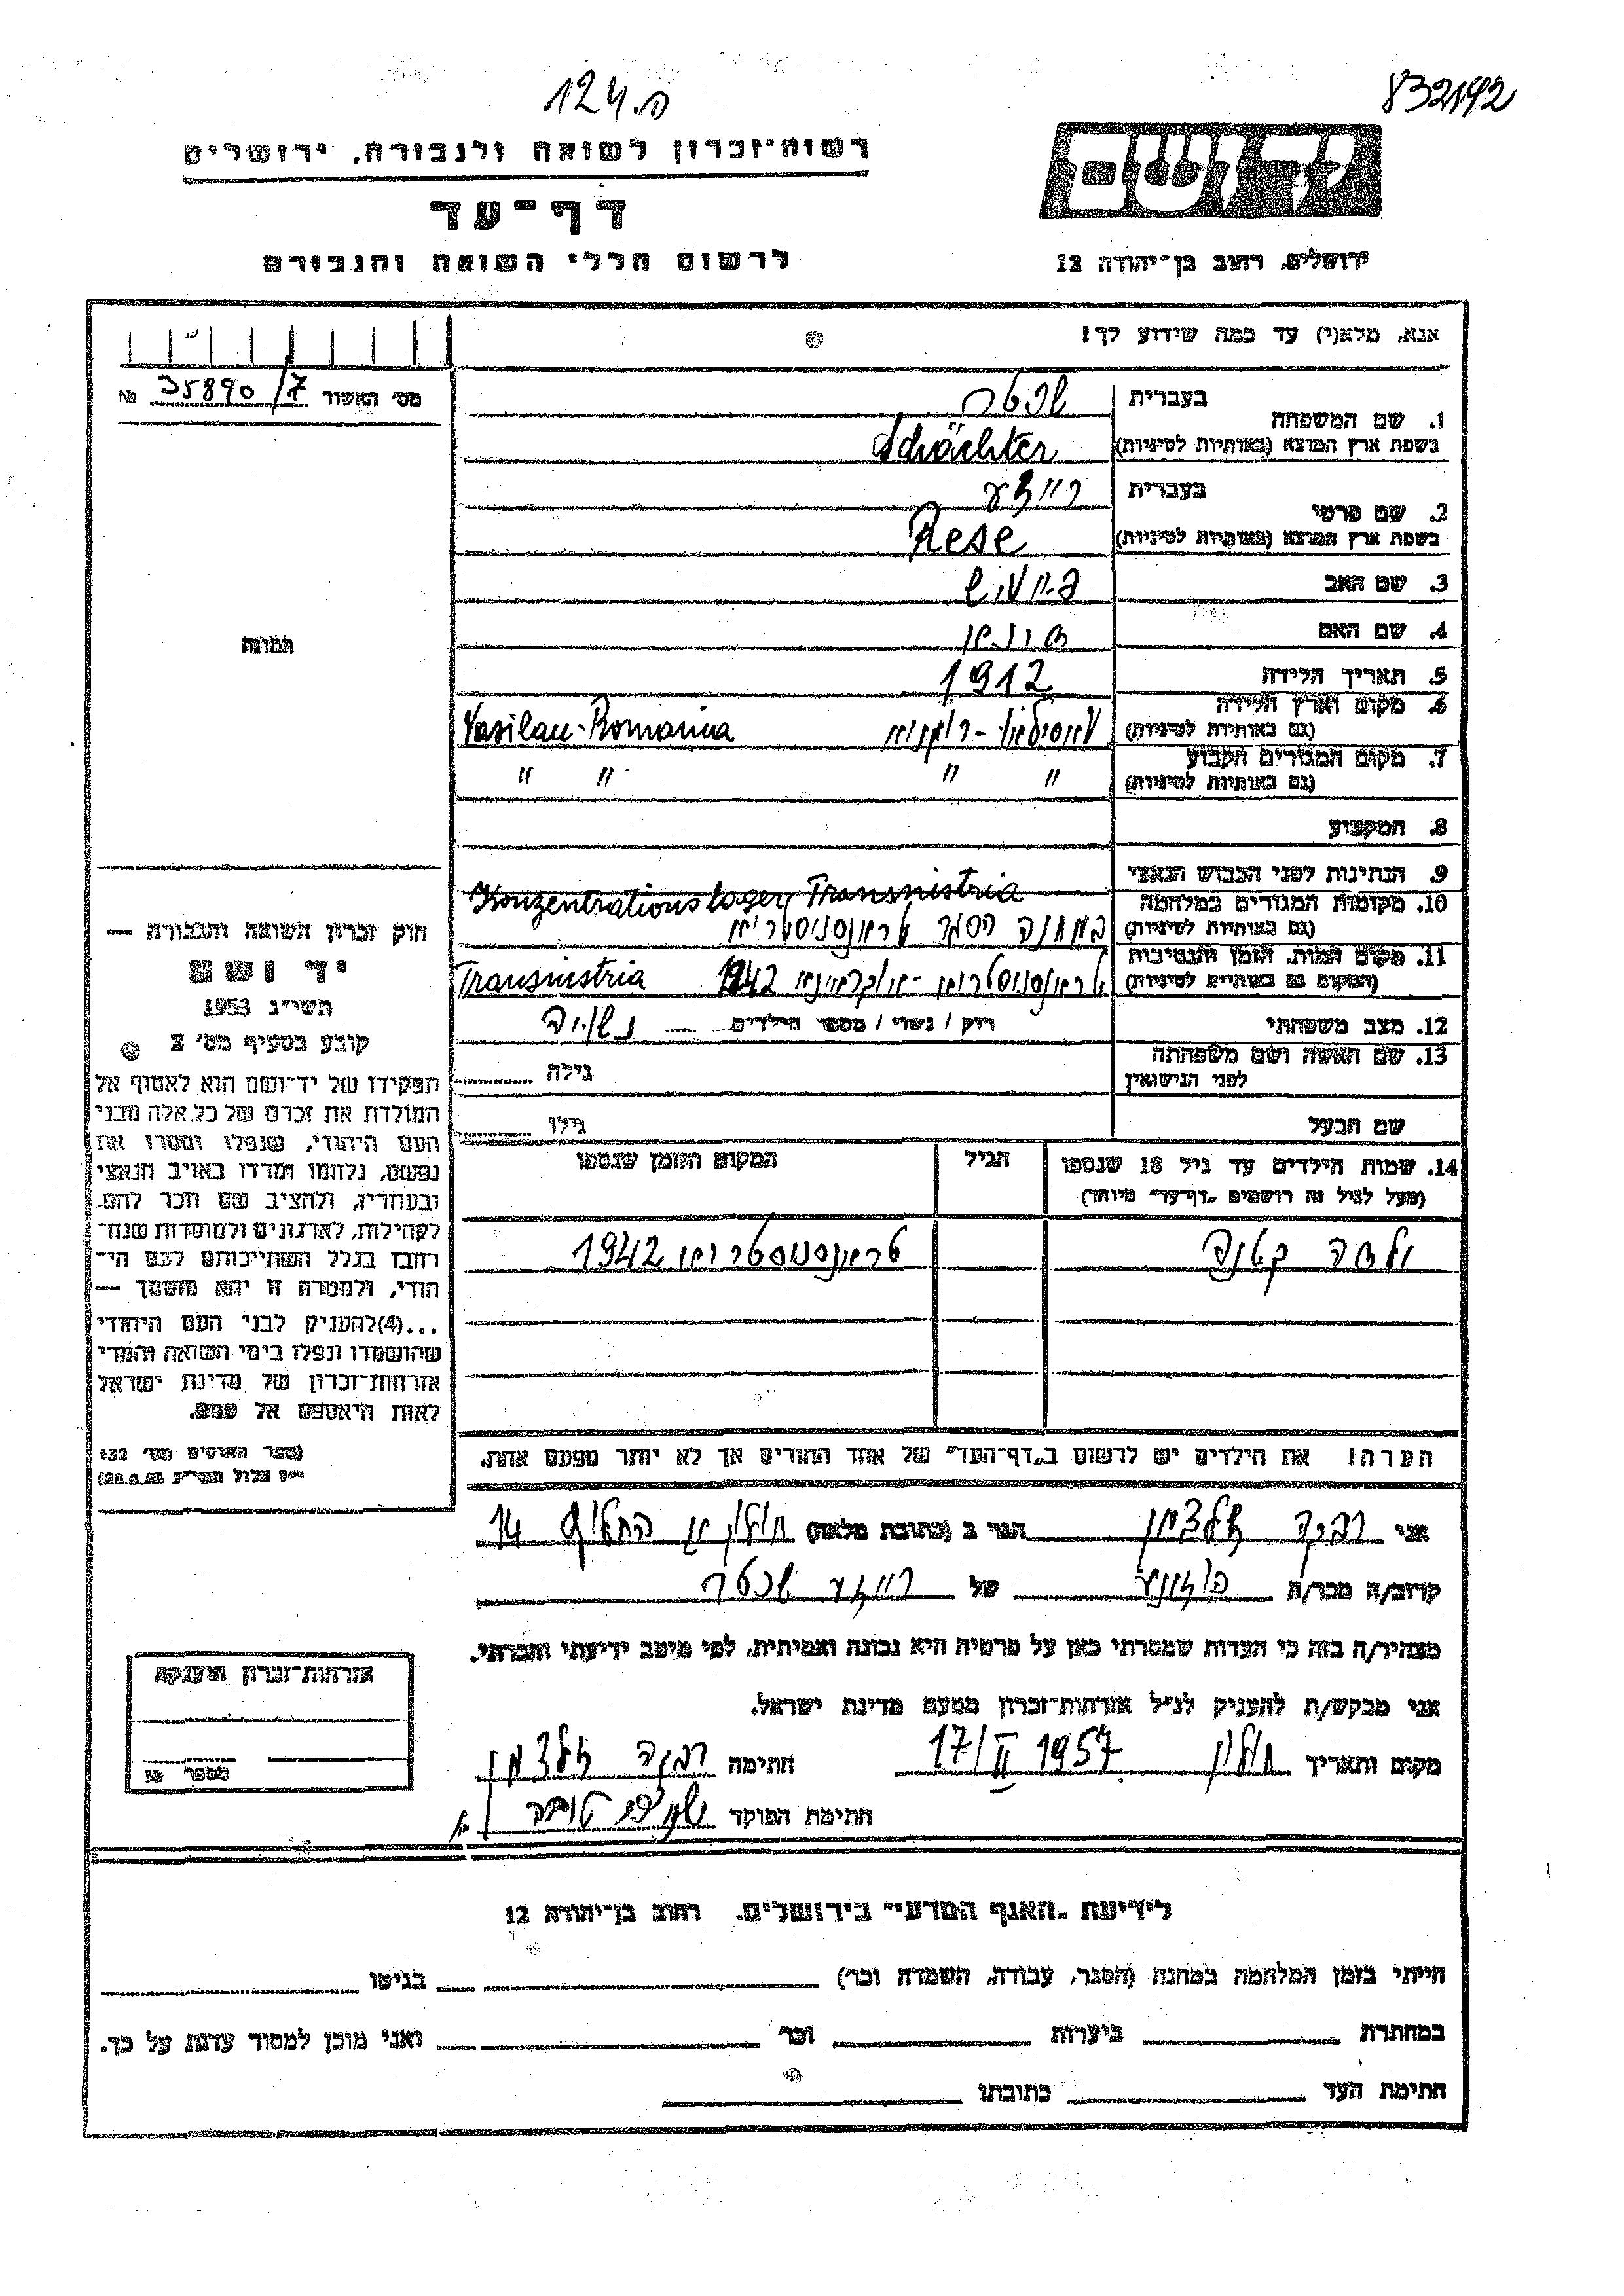 124.ה
832192
רשות־זכרון לשואה ולגבורה, ירושלים
דף־עד
לרשום חללי השואה והגבורה
יד ושם
ירושלים, רחוב בן־יהודה 12
אנא, מלא(י) עד כמה שידוע לך!
מס׳ האשור 35890/7 №
תמונה
1. שם המשפחה
בעברית שכטר
בשפת ארץ המוצא (באותיות לטיניות) Schächter
2. שם פרטי
בעברית רייזע
בשפת ארץ המוצא (באותיות לטיניות) Rese
3. שם האב
4. שם האם
5. תאריך הלידה 1912
6. מקום וארץ הלידה
(גם באותיות לטיניות) וואסילאו - רומניה Vasilau-Romania
7. מקום המגורים הקבוע
(גם באותיות לטיניות) " " " "
8. המקצוע
9. הנתינות לפני הכבוש הנאצי
10. מקומות המגורים במלחמה Konzentrationslager Transnistria
(גם באותיות לטיניות) במחנה הסגר טראנסניסטריא
11. מקום המות, הזמן והנסיבות
(המקום גם באותיות לטיניות) טראנסניסטריא - אוקראינא 1942 Transnistria
12. מצב משפחתי רוק / נשוי / מספר הילדים נשואה
13. שם האשה ושם משפחתה
לפני הנישואין גילה
שם הבעל גילו
14. שמות הילדים עד גיל 18 שנספו הגיל המקום והזמן שנספו
(מעל לגיל זה רושמים „דף־עד״ מיוחד)
ילדה קטנה טראנסניסטריא 1942
הערה! את הילדים יש לרשום ב„דף־העד״ של אחד ההורים אך לא יותר מפעם אחת.
חוק זכרון השואה והגבורה —
יד ושם
תשי״ג 1953
קובע בסעיף מס׳ 2
תפקידו של יד־ושם הוא לאסוף אל
המולדת את זכרם של כל אלה מבני
העם היהודי, שנפלו ומסרו את
נפשם, נלחמו ומרדו באויב הנאצי
ובעוזריו, ולהציב שם וזכר להם,
לקהילות, לארגונים ולמוסדות שנח־
רבו בגלל השתייכותם לעם הי־
הודי, ולמטרה זו יהא מוסמך —
...(4)להעניק לבני העם היהודי
שהושמדו ונפלו בימי השואה והמרי
אזרחות־זכרון של מדינת ישראל
לאות היאספם אל עמם.
(ספר החוקים מס׳ 132
י״ז אלול תשי״ג 28.8.53)
אני רבקה זלצמן הגר ב (כתובת מלאה) חולון 14
קרוב/ה מכר/ה של רייזע שכטר
מצהיר/ה בזה כי העדות שמסרתי כאן על פרטיה היא נכונה ואמיתית, לפי מיטב ידיעתי והכרתי.
אני מבקש/ת להעניק לנ״ל אזרחות־זכרון מטעם מדינת ישראל.
מקום ותאריך חולון 17/II 1957 חתימה רבקה זלצמן
חתימת הפוקד
אזרחות־זכרון הוענקה
מספר
לידיעת „האגף המדעי״ בירושלים, רחוב בן־יהודה 12
הייתי בזמן המלחמה במחנה (הסגר, עבודה, השמדה וכו׳) בגיטו
במחתרת ביערות וכו׳ ואני מוכן למסור עדות על כך.
חתימת העד כתובתו